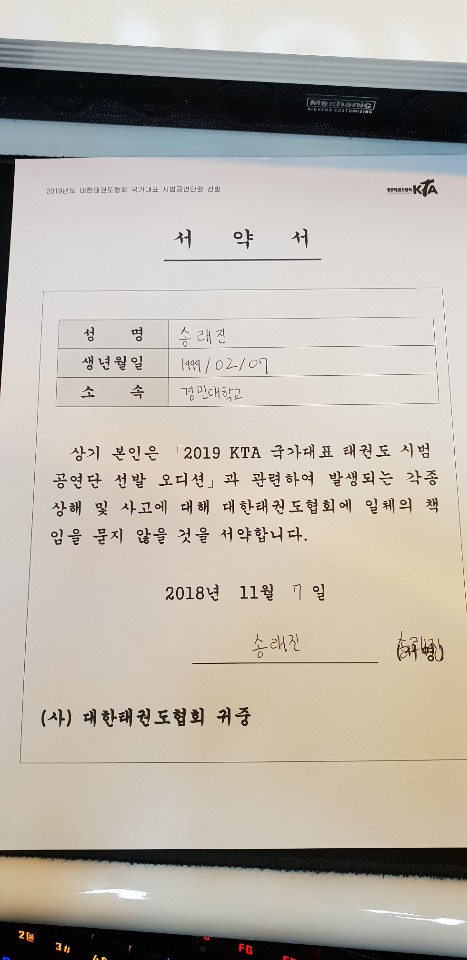 Mechanic
2019년도 대한태권도협회 국가대표 시범공연단원 선발
대한태권도협회 KTA
서 약 서
성 명 송래진
생년월일 1999/02/07
소 속 경민대학교
상기 본인은 「2019 KTA 국가대표 태권도 시범
공연단 선발 오디션」과 관련하여 발생되는 각종
상해 및 사고에 대해 대한태권도협회에 일체의 책
임을 묻지 않을 것을 서약합니다.
2018년 11월 7일
송래진 (서명)
(사) 대한태권도협회 귀중
3#
FG